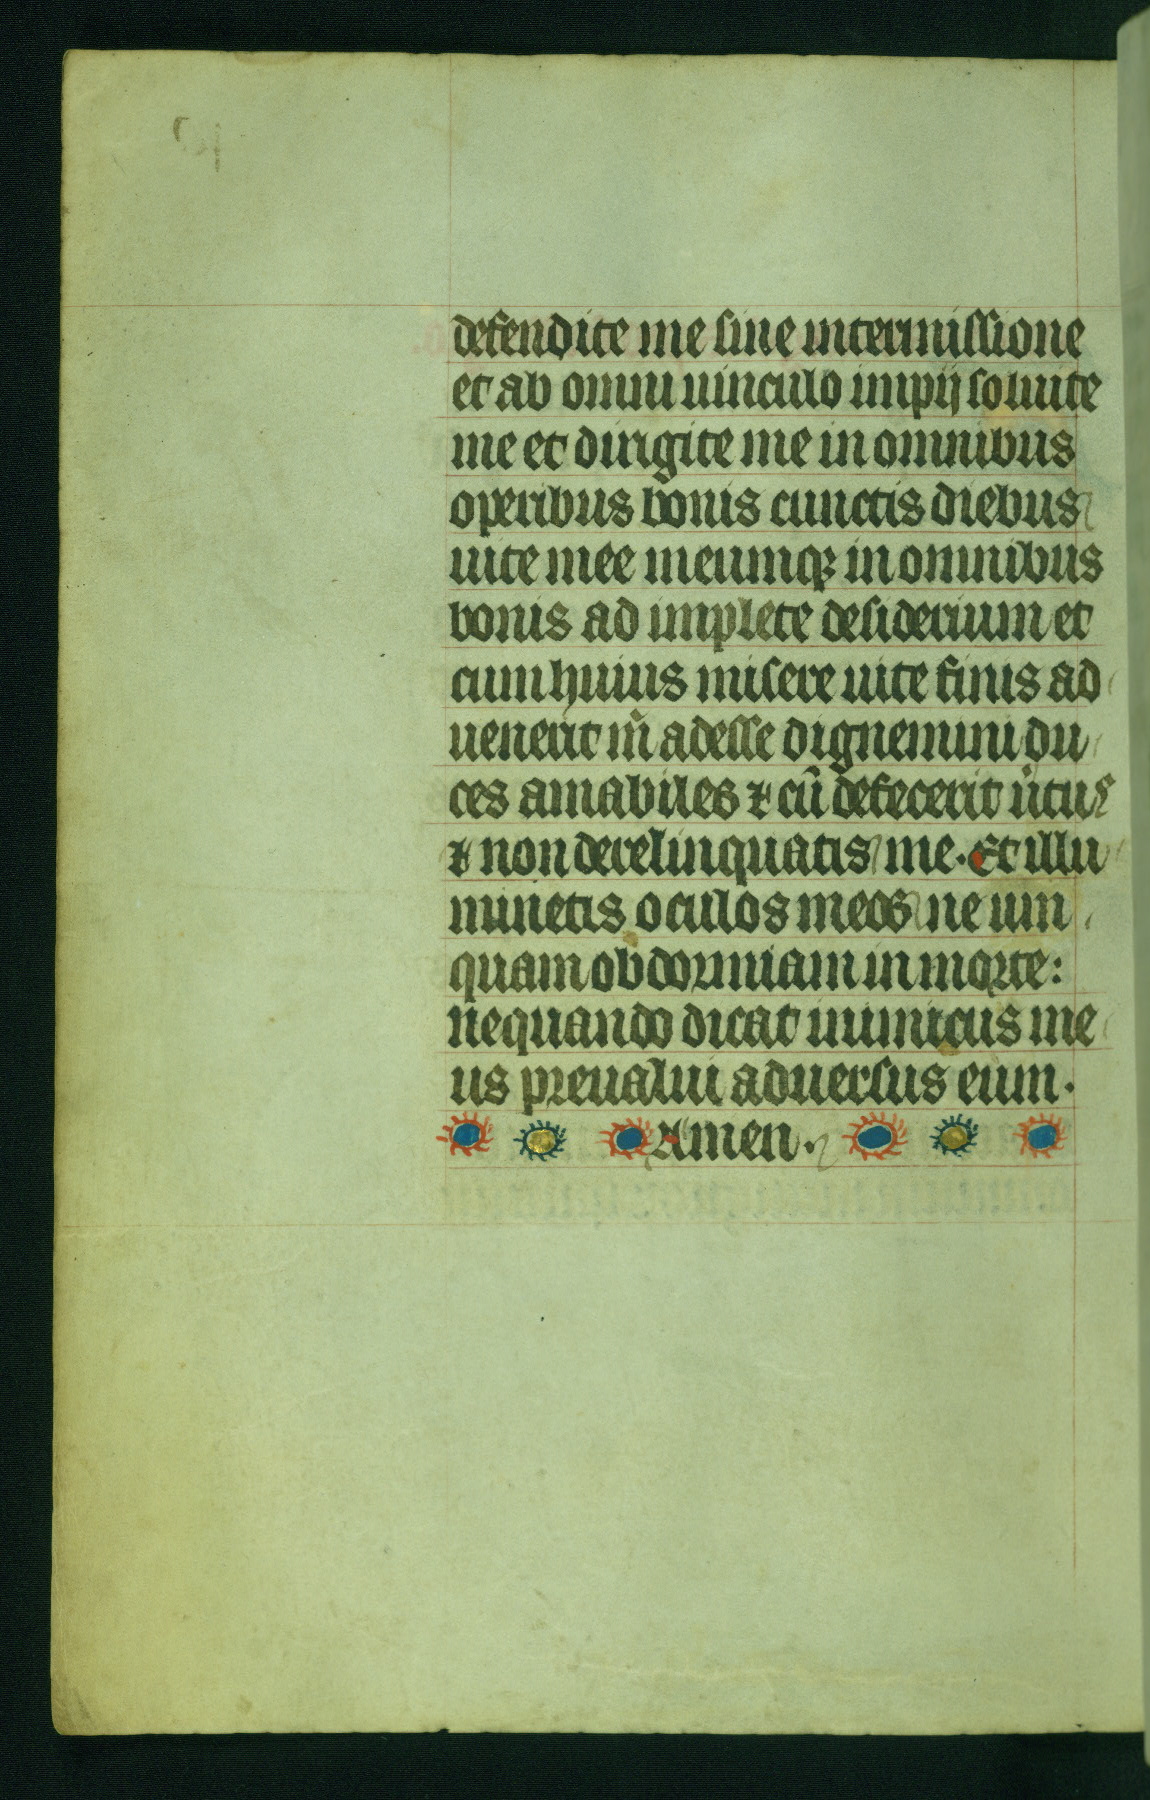 defendite me sine intermissione
et ab omni uinculo impij soluite
me et dirigite me in omnibus
operibus bonis cunctis diebus
uite mee meumqꝫ in omnibus
bonis ad implete desiderium et
cum huius misere uite finis ad
uenerit m̄ adesse dignemini du
ces amabiles ⁊ cū defecerit u̾tus
⁊ non derelinquatis me. Et illu
minetis oculos meos ne um
quam obdormiam in morte:
nequando dicat inimicus me
us preualui aduersus eum.
Amen.